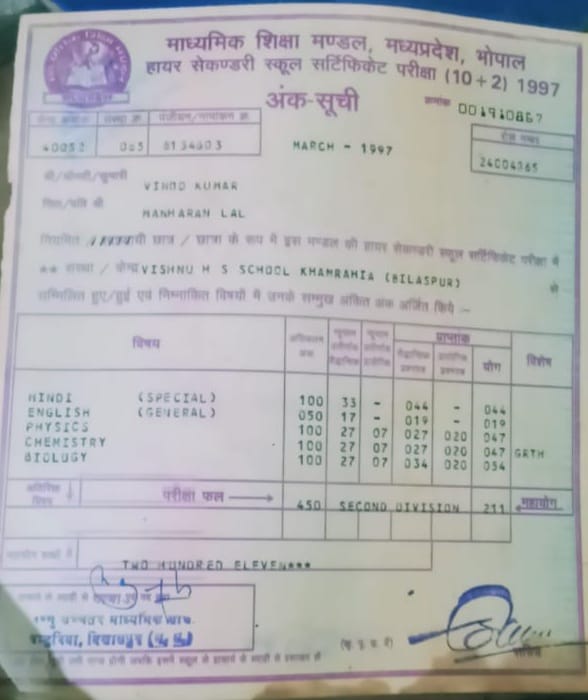 माध्यमिक शिक्षा मण्डल, मध्यप्रदेश, भोपाल
हायर सेकण्डरी स्कूल सर्टिफिकेट परीक्षा (10+2) 1997
अंक-सूची
क्रमांक 001910867
केन्द्र क्रमांक संस्था क्र. पंजीयन/नामांकन क्र.
40052 085 8134603
MARCH - 1997
रोल नम्बर
24004365
श्री/श्रीमती/कुमारी
VINOD KUMAR
पिता/पति श्री
MANHARAN LAL
नियमित छात्र / छात्रा के रूप में इस मण्डल की हायर सेकण्डरी स्कूल सर्टिफिकेट परीक्षा में
** संस्था / केन्द्र VISHNU H S SCHOOL KHAMRAHIA (BILASPUR) से
सम्मिलित हुए/हुई एवं निम्नांकित विषयों में उनके सम्मुख अंकित अंक अर्जित किये :-
विषय अधिकतम अंक न्यूनतम न्यूनतम प्राप्तांक विशेष
सैद्धान्तिक प्रायोगिक योग
HINDI (SPECIAL) 100 33 - 044 - 044
ENGLISH (GENERAL) 050 17 - 019 - 019
PHYSICS 100 27 07 027 020 047
CHEMISTRY 100 27 07 027 020 047 GRTH
BIOLOGY 100 27 07 034 020 054
अतिरिक्त विषय ↓ परीक्षा फल → 450 SECOND DIVISION 211 महायोग
महायोग शब्दों में TWO HUNDRED ELEVEN***
उच्चतर माध्यमिक
सचिव